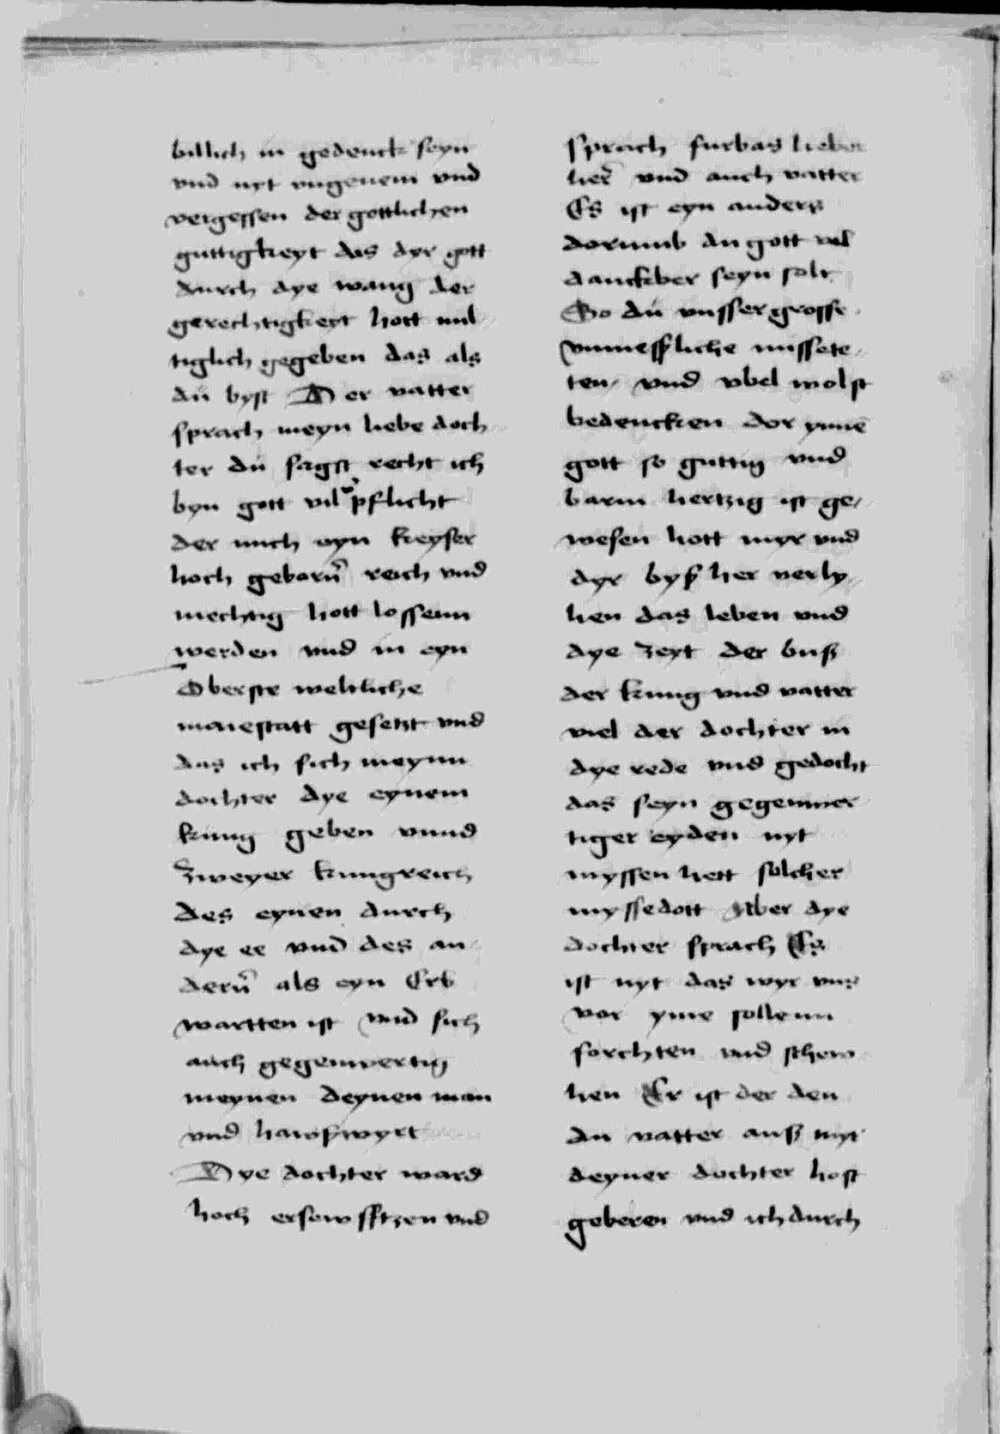 billich in gedenck seyn
vnd nyt vngenem vnd
vergessen der gottlichen
guttigkeyt das dyr gott
durch dye wang der
gerechtigkeyt hott mil
tiglich gegeben das als
du byst Der vatter
sprach meyn liebe doch
ter du sagst recht ich
byn gott vil pflicht
der mich eyn keyser
hoch geborn̄ reich vnd
mechtig hott lossenn
werden vnd in eyn
Oberste weltliche
maiestatt gesetzt vnd
das ich sich meynn
dochter dye eynem
kung geben vnnd
Zweyer kungreich
des eynen durch
dye ee vnd des an
dern̄ als eyn Erb
wartten ist vnd sich
auch gegenwertig
meynen deynen man
vnd hawßwyrt
Dye dochter ward
hoch ersewfftzen vnd
sprach furbas lieber
her̄ vnd auch vatter
Es ist eyn anders
dorumb du gott vil
danckber seyn solt
So du vnsser grosse
vnmeßliche missete
ten / vnd vbel wolst
bedencken dor ynne
gott so guttig vnd
barm hertzig ist ge/
wesen hott myr vnd
dyr byß her verly
hen das leben vnd
dye zeyt der buß
der kung vnd vatter
viel der dochter in
dye rede vnd gedocht
das seyn gegenwer
tiger eyden nyt
wyssen hett solcher
myssedott Aber dye
dochter sprach Es
ist nyt das wyr vns
vor yme sollenn
forchten vnd schew
hen Er ist der den
du vatter auß myt
deyner dochter host
geberen vnd ich durch